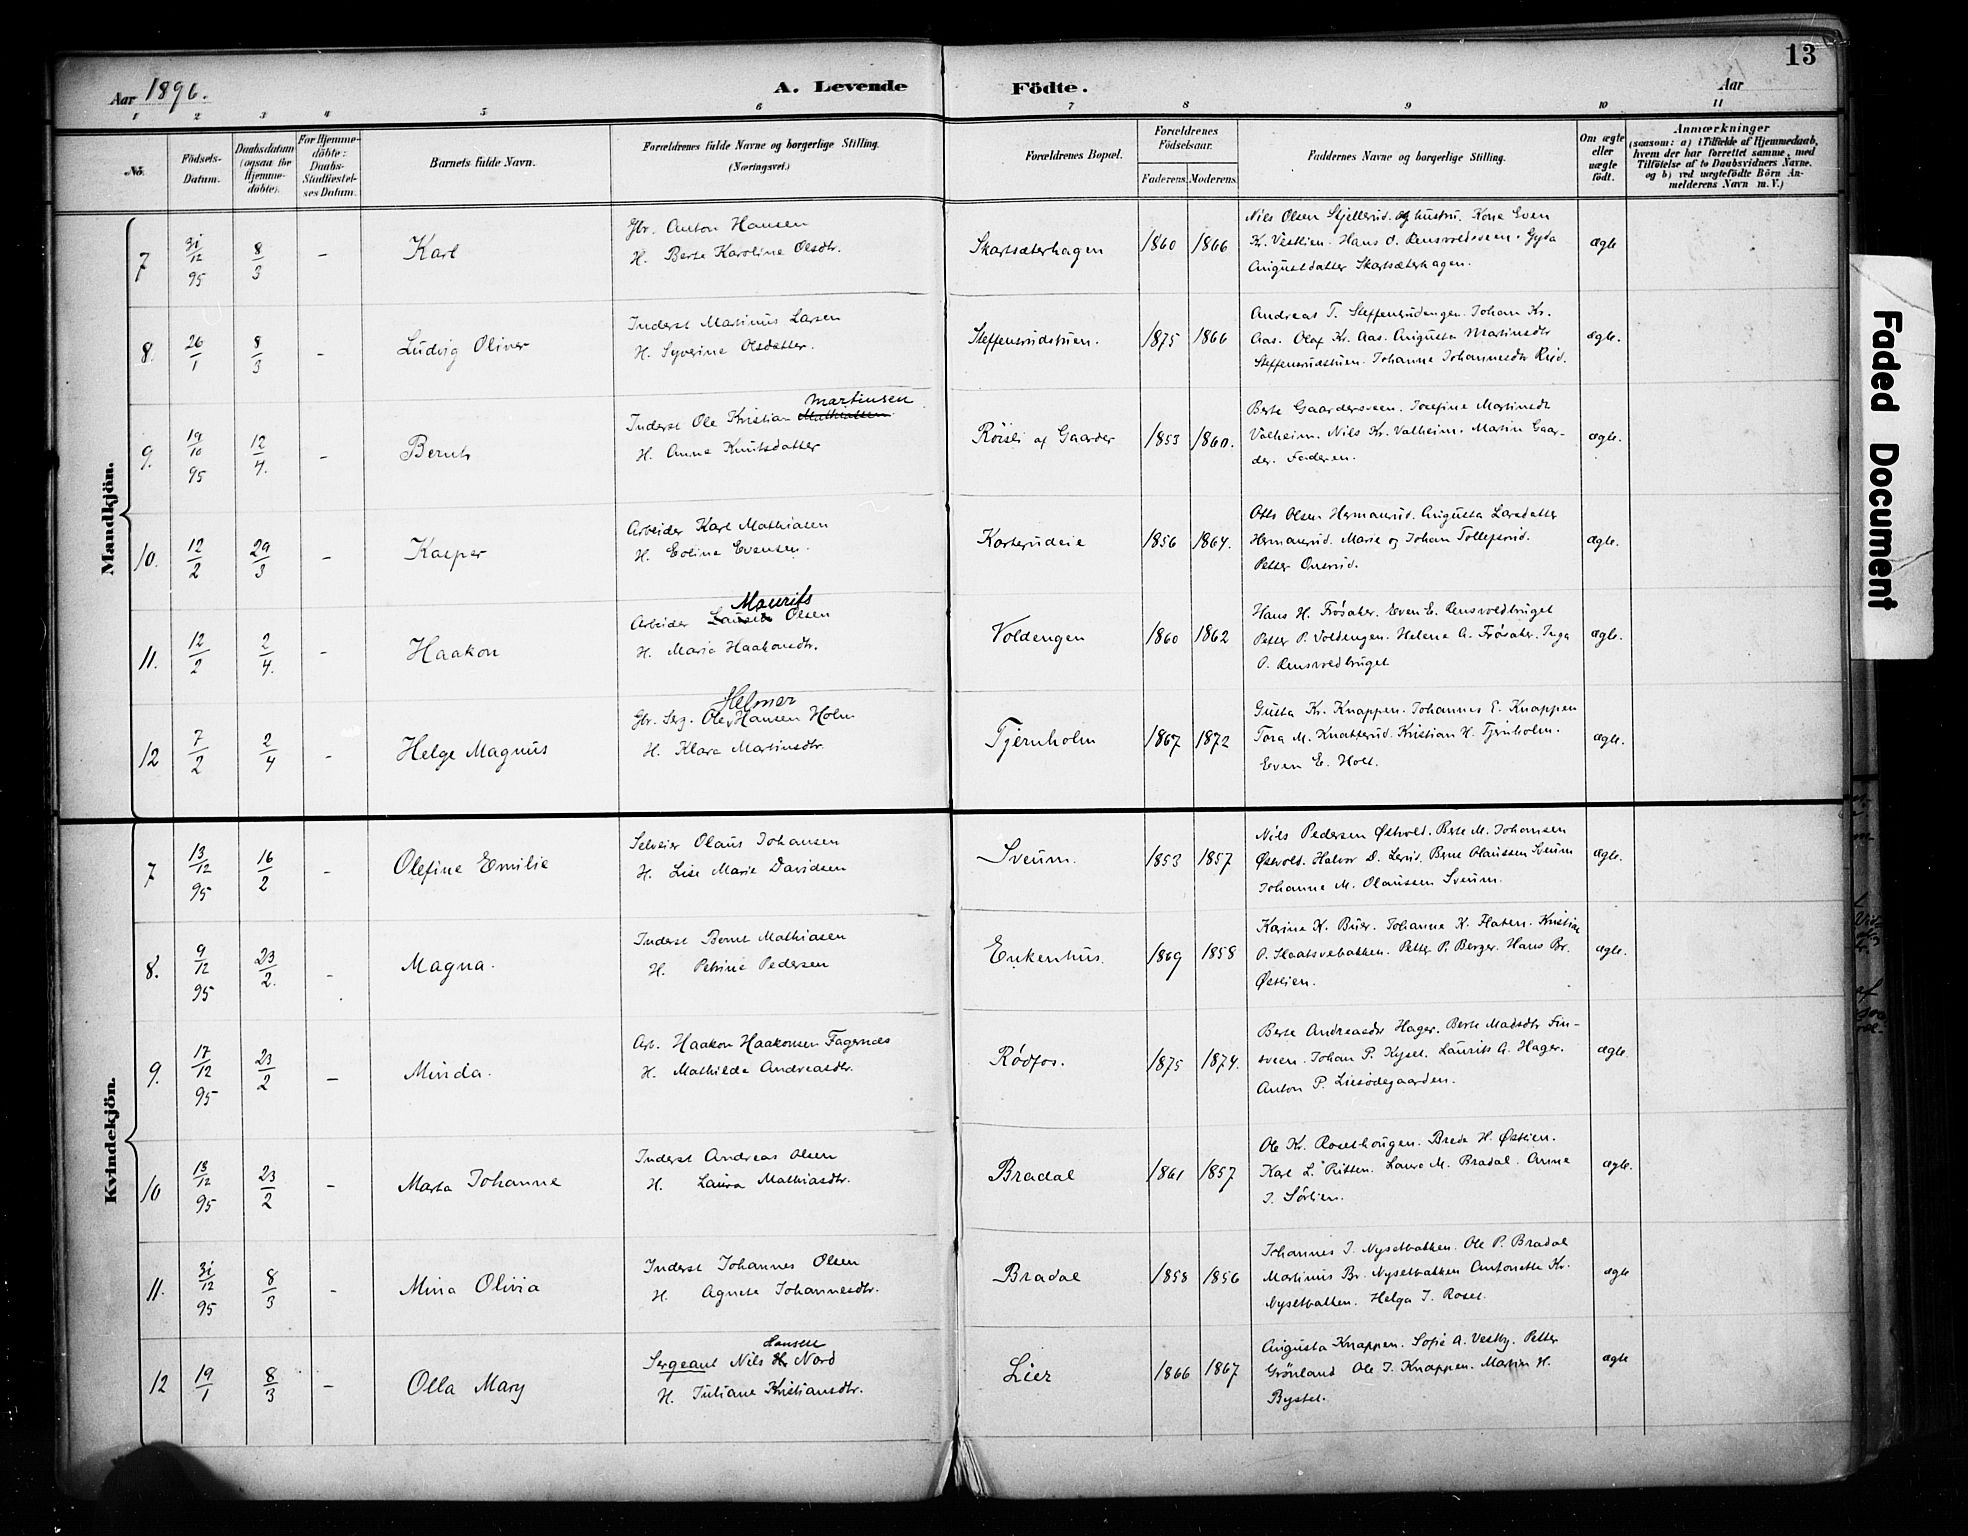 13
Aar 1896.
A. Levende Födte.
Aar
1 2 3 4 5 6 7 8 9 10 11
No.
Födsels-Datum.
Daabsdatum (ogsaa for Hjemme-döbte).
For Hjemme-döbte: Daabs-Stadfæstel-ses Datum.
Barnets fulde Navn.
Forældrenes fulde Navne og borgerlige Stilling. (Næringsvei.)
Forældrenes Bopæl.
Forældrenes Födselsaar.
Faderens. Moderens.
Faddernes Navne og borgerlige Stilling.
Om ægte eller uægte födt.
Anmærkninger
(saasom: a) i Tilfælde af Hjemmedaab, hvem der har forrettet samme, med Tilföielse af to Daabsvidners Navne. og b) ved uægtefödte Börn An-melderens Navn m. V.)
Mandkjön.
7 31/12 95 8/3 - Karl
Gbr. Anton Hansen
H. Berte Karoline Olsdtr.
Skartsæterhagen 1860 1866
Nils Olsen Stjellerud. og hustru. Kone Even
K. Vestlien. Hans O. Rensvoldsveen. Gyda
Augustdatter Skartsæterhagen.
ægte
8. 26/1 8/3 - Ludvig Oliver
Inderst Martinus Larsen
H. Syverine Olsdatter.
Steffensrudstuen. 1875 1866
Andreas T. Steffensrudengen. Johan Kr.
Aas. Olaf Kr. Aas. Augusta Martinsdtr
Steffensrudstuen. Johanne Johannesdtr Rud.
ægte.
9. 19/10 95 12/4. - Bernt
Martinsen
Inderst Ole Kristian Mathiassen
H. Anne Knutsdatter
Røisli af Gaarder 1853 1860.
Berte Gaardersveen. Josefine Martinsdt
Valheim. Nils Kr. Valheim. Martin Gaar-
der. Faderen.
ægte.
10. 12/2 29/3 - Kasper
Arbeider Karl Mathiasen
H. Eoline Evensen.
Karterudeie 1856 1864.
Otto Olsen Hermanrud. Augusta Larsdatter
Hermanrud. Marie og Johan Tollefsrud.
Petter Onsrud.
ægte.
11. 12/2 2/4. - Haakon
Maurits
Arbeider Laurits Olsen
H. Maria Haakonsdtr.
Voldengen 1860 1862
Hans H. Frøsaker. Even E. Rensvoldbruget
Petter P. Voldengen. Helene A. Frøsaker. Inga
O. Rensvoldbruget
ægte.
12 7/2 2/4 - Helge Magnus
Helmer
Gbr. Serg. Ole Hansen Holm
H. Klara Martinsdtr.
Tjernholm 1867 1872
Gusta Kr. Knappen. Johannes E. Knappen
Tora M. Knatterud. Kristian H. Tjernholm.
Even E. Holt.
ægte.
Kvindekjön.
7 13/12 95 16/2 - Olefine Emilie
Selveier Olaus Johansen
H. Lise Marie Davidsen
Sveum. 1853 1857
Nils Pedersen Østvold. Berte M. Johansen
Østvold. Halvor D. Lerud. Berne Olaussen Sveum
Johanne M. Olaussen Sveum.
ægte.
8. 9/12 95 23/2. - Magna.
Inderst Bernt Mathiasen
H. Petrine Pedersen
Enkenhus. 1869 1858
Karine K. Buer. Johanne K. Flaten. Kristine
P. Slaatsvebakken. Petter P. Berger. Hans Br.
Østlien.
ægte.
9. 17/12 95 23/2 - Minda.
Arb. Haakon Haakonsen Fagernæs
H. Mathilde Andreasdtr.
Rødfos. 1875 1874.
Berte Andreasdtr Hager. Berte Madsdtr Fin-
sveen. Johan P. Kysel. Laurits A. Hager.
Anton P. Liesødegaarden.
ægte.
10 13/12 95 23/2 - Marta Johanne
Inderst Andreas Olsen
H. Laura Mathiasdtr.
Bradal 1861 1857
Ole Kr. Rosethougen. Brede H. Østlien.
Karl L. Putten. Laura M. Bradal. Anne
J. Sørlien.
ægte.
11. 31/12 95 8/3 - Mina Olivia
Inderst Johannes Olsen
H. Agnete Johannesdtr.
Bradal 1858 1856
Johannes J. Nysetbakken. Ole P. Bradal
Martinus Br. Nysetbakken Antonette Kr.
Nysetbakken. Helga J. Roset.
ægte
12 19/1 8/3 - Olla Mary
Hansen
Sergeant Nils H. Nord
H. Juliane Kristiansdtr.
Lier 1866 1867
Augusta Knappen. Sofie A. Vestby. Petter
Grönland Ole J. Knappen. Martin H.
Bystet.
ægte
Faded Document